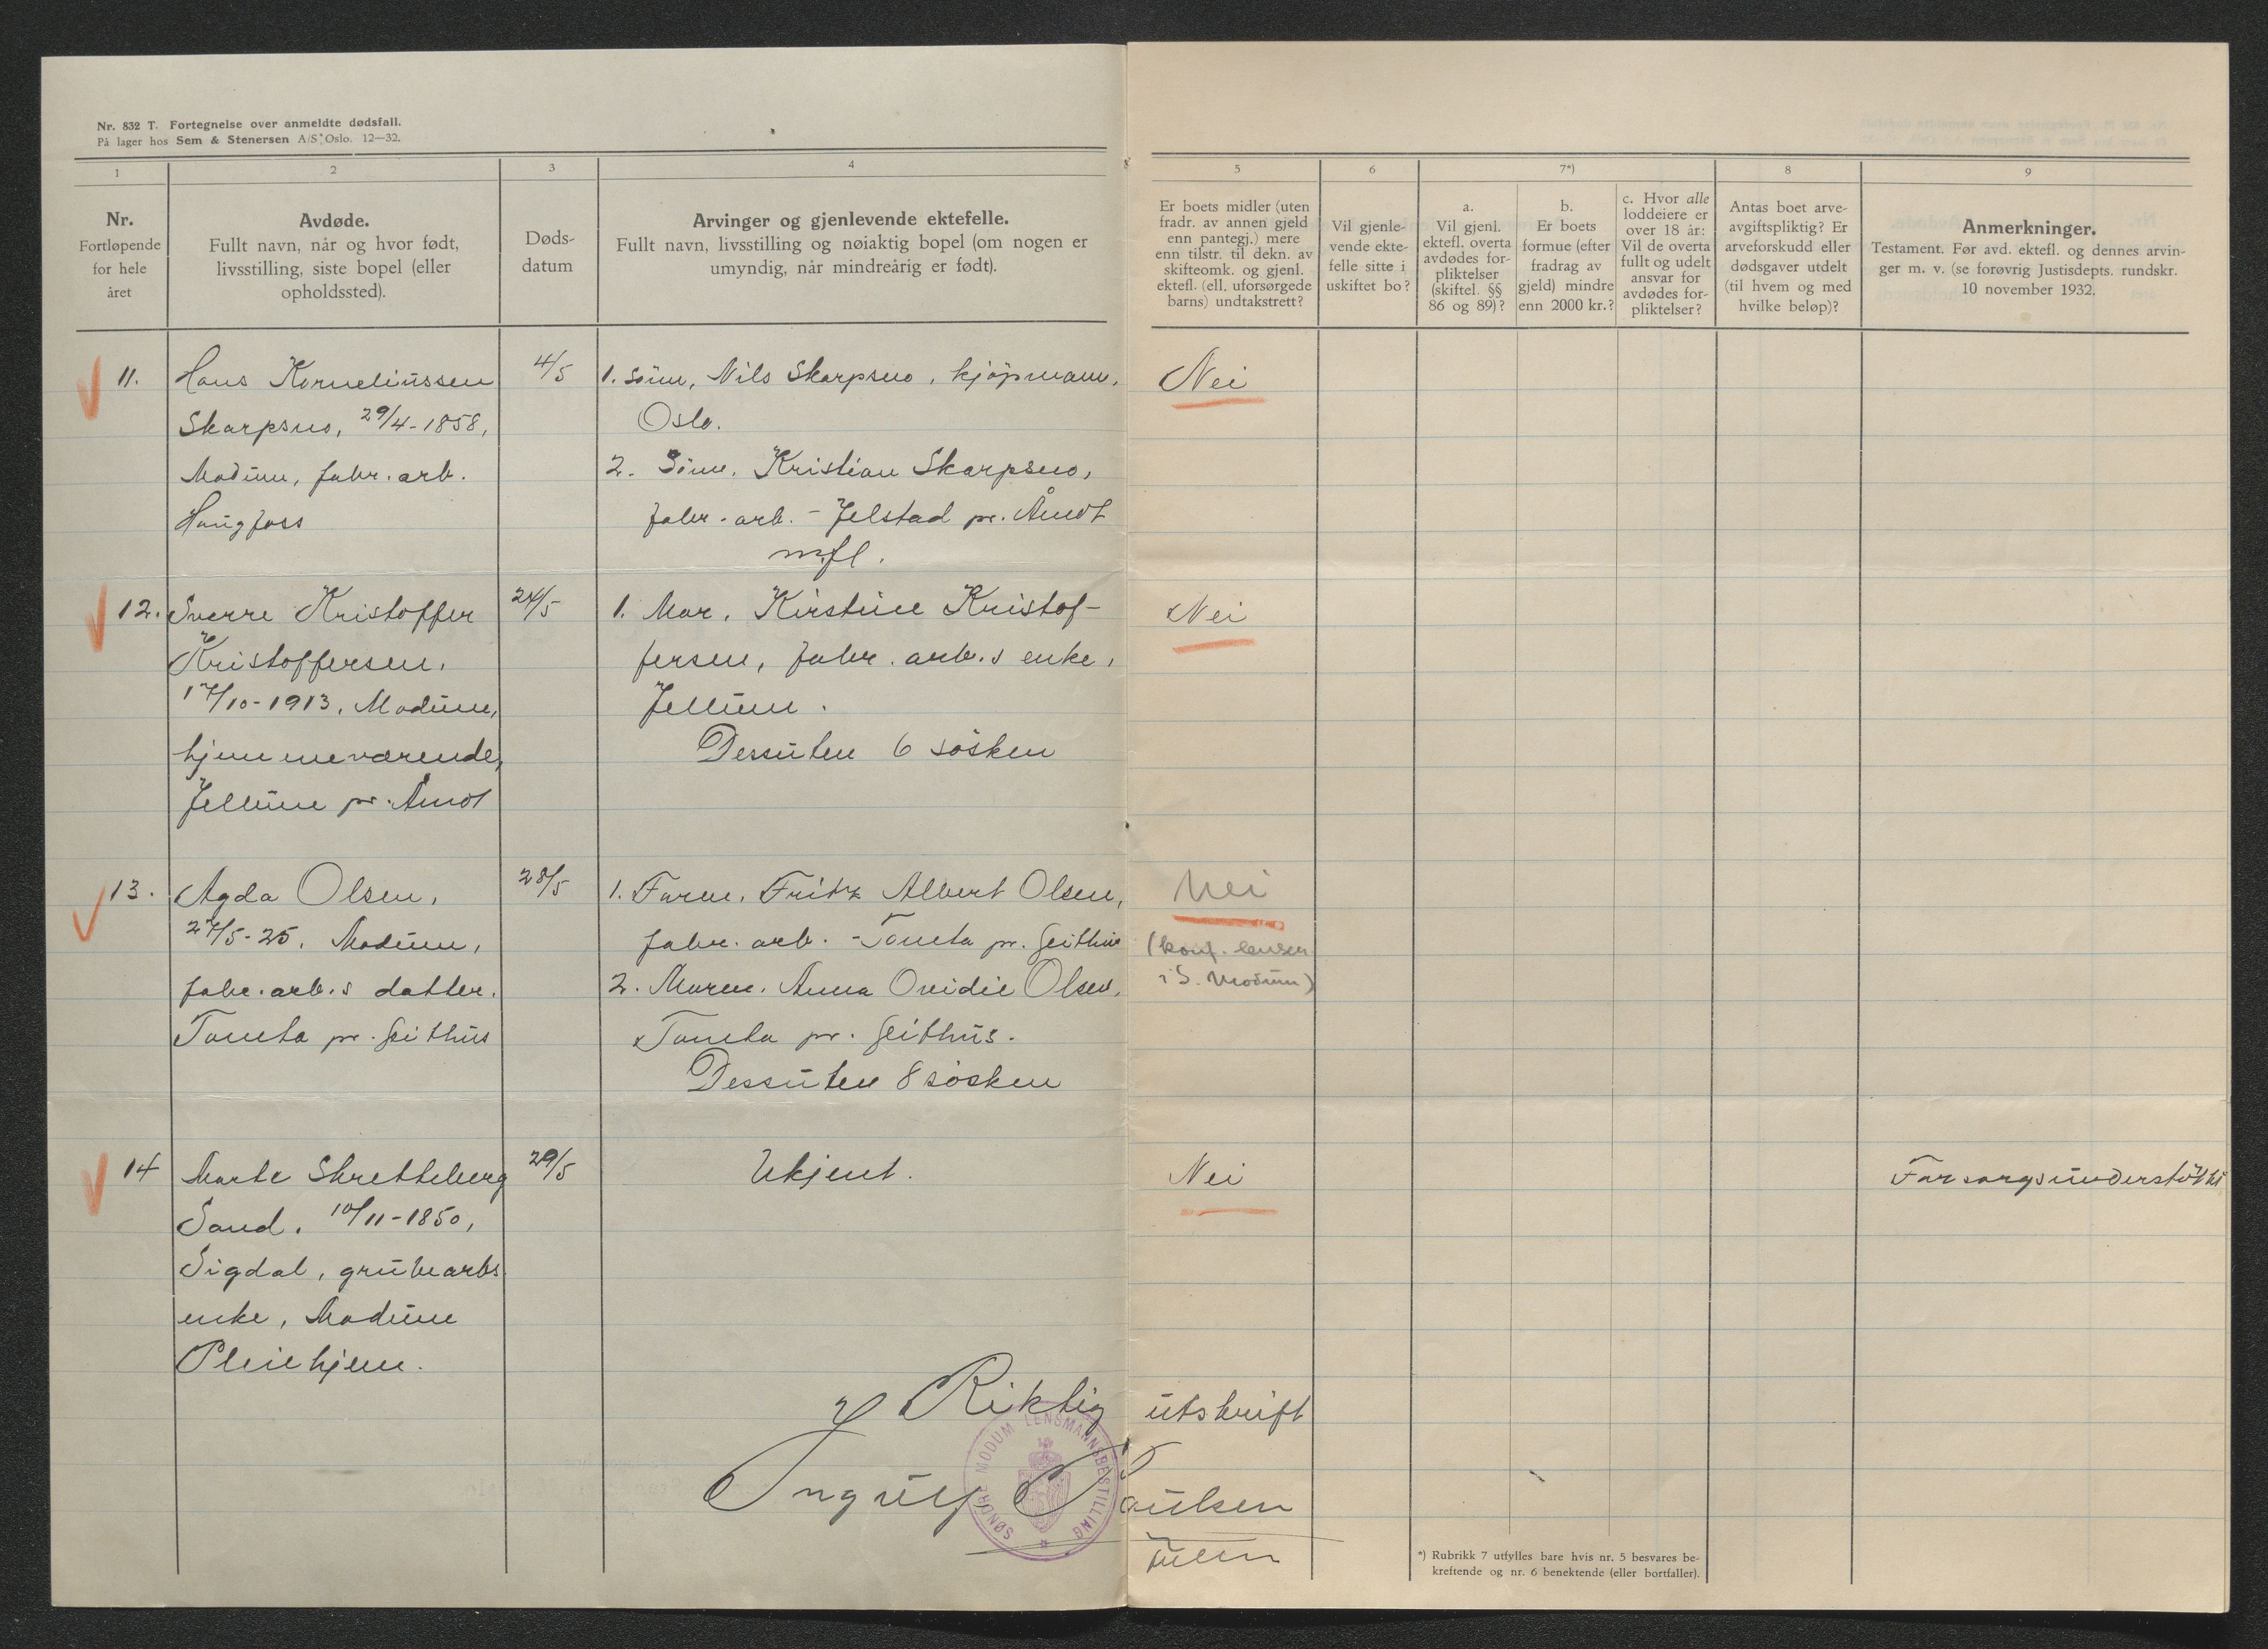 Nr. 832 T. Fortegnelse over anmeldte dødsfall.
På lager hos Sem & Stenersen A/S, Oslo. 12—32.
1
2
3
4
Nr.
Fortløpende
for hele
året
Avdøde.
Fullt navn, når og hvor født,
livsstilling, siste bopel (eller
opholdssted).
Døds-
datum
Arvinger og gjenlevende ektefelle.
Fullt navn, livsstilling og nøiaktig bopel (om nogen er
umyndig, når mindreårig er født).
5
6
7*)
8
9
Er boets midler (uten
fradr. av annen gjeld
enn pantegj.) mere
enn tilstr. til dekn. av
skifteomk. og gjenl.
ektefl. (ell. uforsørgede
barns) undtakstrett?
Vil gjenle-
vende ekte-
felle sitte i
uskiftet bo?
a.
Vil gjenl.
ektefl. overta
avdødes for-
pliktelser
(skiftel. §§
86 og 89)?
b.
Er boets
formue (efter
fradrag av
gjeld) mindre
enn 2000 kr.?
c. Hvor alle
loddeiere er
over 18 år:
Vil de overta
fullt og udelt
ansvar for
avdødes for-
pliktelser?
Antas boet arve-
avgiftspliktig? Er
arveforskudd eller
dødsgaver utdelt
(til hvem og med
hvilke beløp)?
Anmerkninger.
Testament. Før avd. ektefl. og dennes arvin-
ger m. v. (se forøvrig Justisdepts. rundskr.
10 november 1932.
11.
Hans Korneliussen
Skarpsno, 29/4-1858,
Modum, fabr. arb.
Haugfoss
4/5
1. Sønn, Nils Skarpsno, kjøpmann,
Oslo.
2. Sønn, Kristian Skarpsno,
fabr. arb. - Jelstad pr. Åmot
m.fl.
Nei
12.
Sverre Kristoffer
Kristoffersen,
17/10-1913, Modum,
hjemmeværende,
Jellum pr. Åmot
24/5
1. Mor, Kirstine Kristof-
fersen, fabr. arb.s enke,
Jellum.
Dessuten 6 søsken
Nei
13.
Agda Olsen,
27/5-25, Modum,
fabr. arb.s datter,
Toneta pr. Geithus
28/5
1. Faren, Fritz Albert Olsen,
fabr. arb. - Toneta pr. Geithus
2. Moren, Anna Ovidie Olsen,
Toneta pr. Geithus.
Dessuten 8 søsken
Nei
(konf. lensm
i S. Modum)
14
Marte Skretteberg
Sand, 10/11-1850,
Sigdal, grubearbs
enke, Modum
Pleiehjem.
29/5
Ukjent.
Nei
Forsorgsunderstøttet
Riktig utskrift
Ingulf Paulsen
SØNDRE MODUM LENSMANNSBESTILLING
*) Rubrikk 7 utfylles bare hvis nr. 5 besvares be-
kreftende og nr. 6 benektende (eller bortfaller).